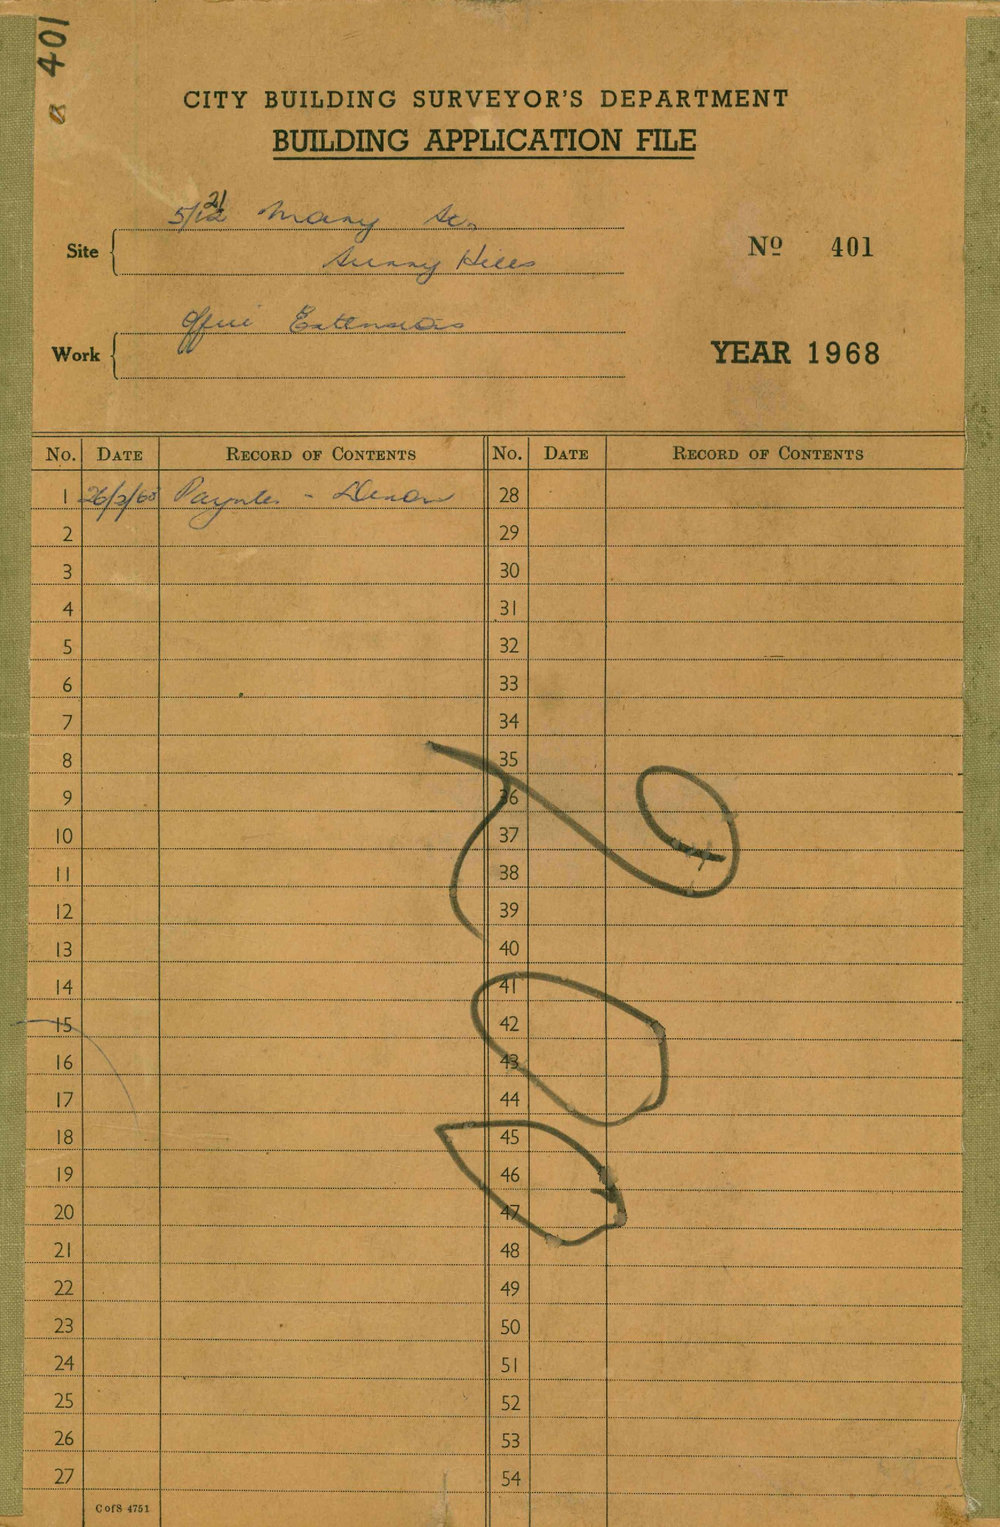 401
CITY BUILDING SURVEYOR'S DEPARTMENT
BUILDING APPLICATION FILE
Site
Mary St.
Surry Hills
Nº 401
Work
Office Extensions
YEAR 1968
No. DATE RECORD OF CONTENTS No. DATE RECORD OF CONTENTS
1 26/2/68 Paynter - Dixon 28
2 29
3 30
4 31
5 32
6 33
7 34
8 35
9 36
10 37
11 38
12 39
13 40
14 41
15 42
16 43
17 44
18 45
19 46
20 47
21 48
22 49
23 50
24 51
25 52
26 53
27 54
C of S 4751